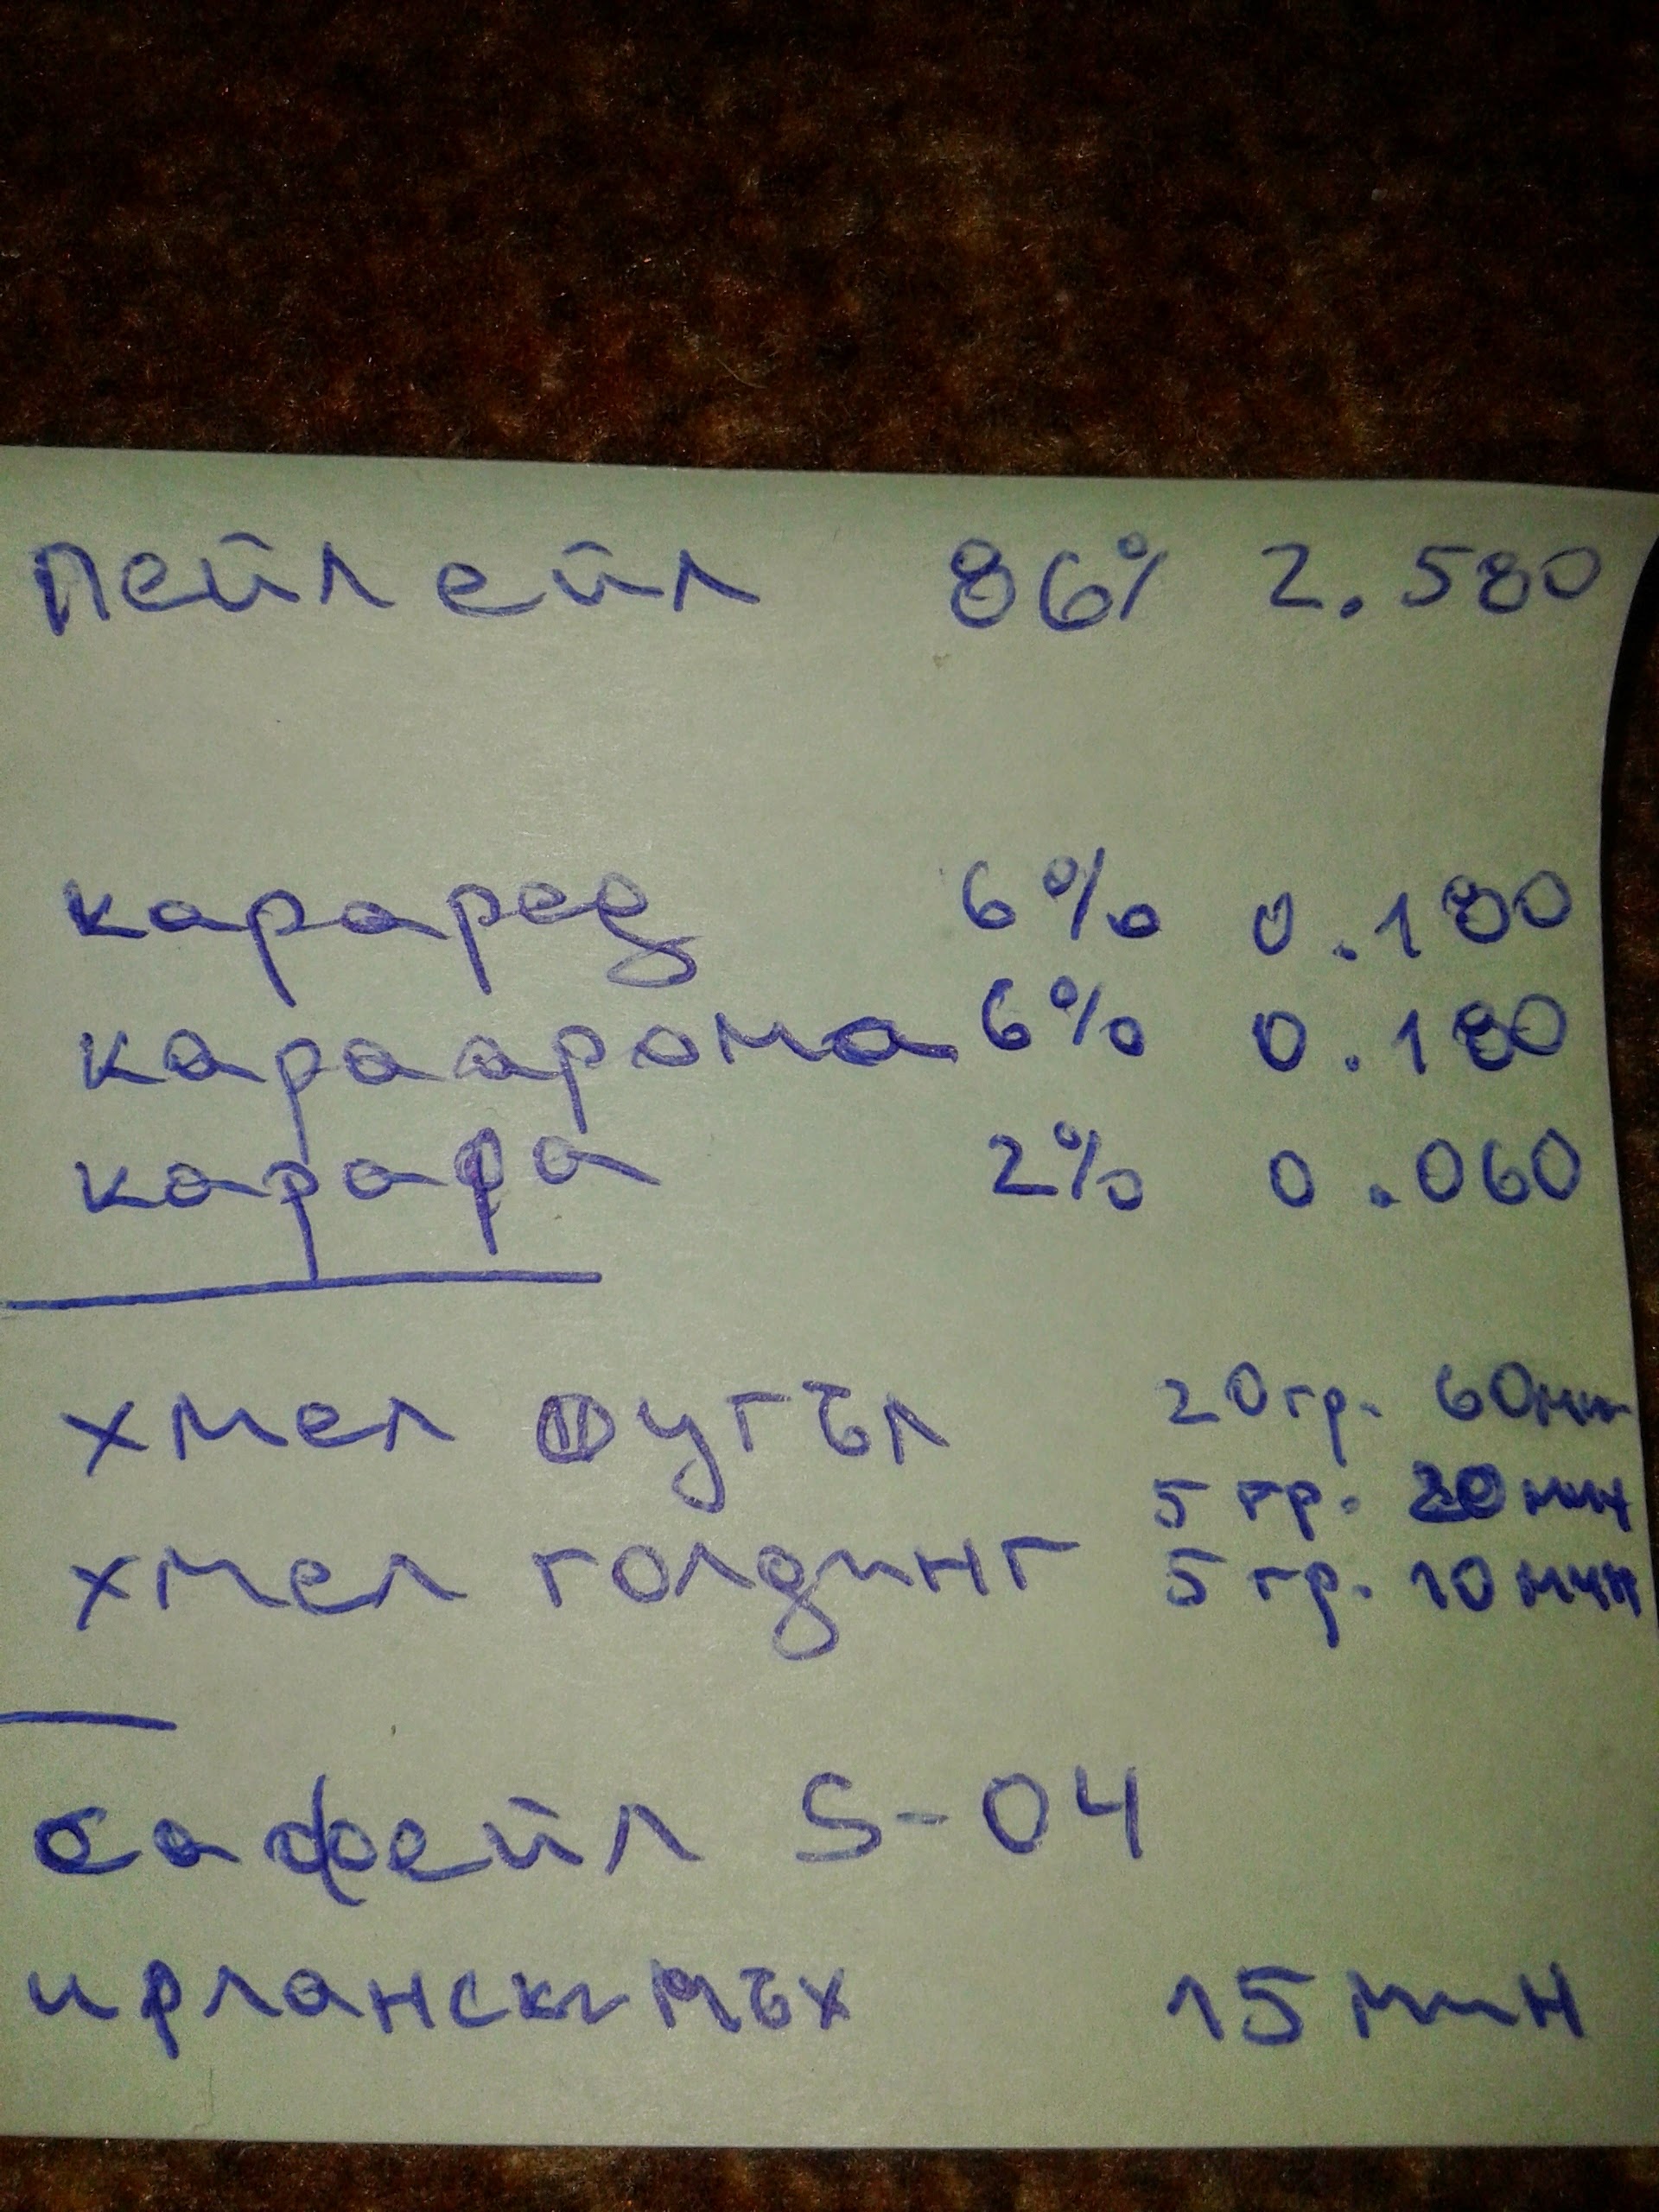 пейл ейл 86% 2.580
караред 6% 0.180
караарома 6% 0.180
карафа 2% 0.060
хмел фугъл 20гр. 60мин
5 гр. 20мин
хмел голдинг 5 гр. 10мин
сафейл S-04
ирлански мъх 15 мин